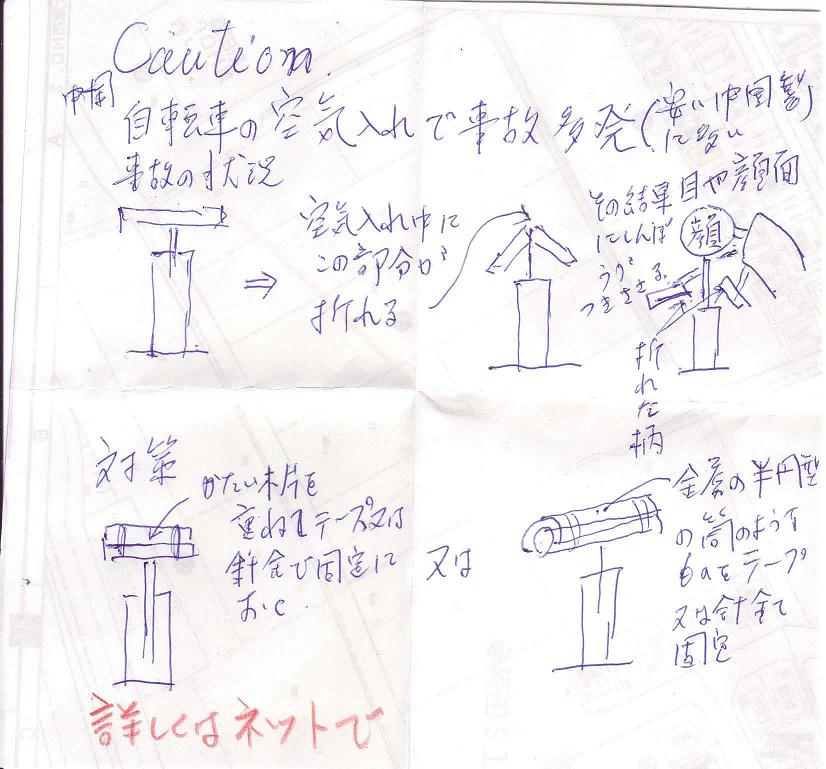 Caution
中国
自転車の空気入れで事故多発(安い中国製に多い)
事故の状況
空気入れ中に
この部分が
折れる
その結果目や顔面
にしんぼ
うが
つきささる。
顔
折れた柄
対策
かたい木片を
重ねてテープ又は
針金で固定に
おく
又は
金属の半円型
の筒のような
ものをテープ
又は針金で
固定
詳しくはネットで